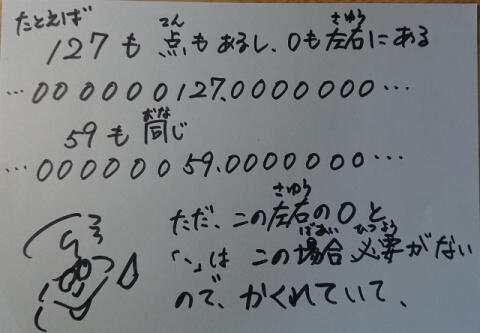 たとえば
127も点もあるし、0も左右にある
…000000127.0000000…
59も同じ
…00000059.0000000…
ただ、この左右の0と
「、」はこの場合、必要がない
ので、かくれていて、